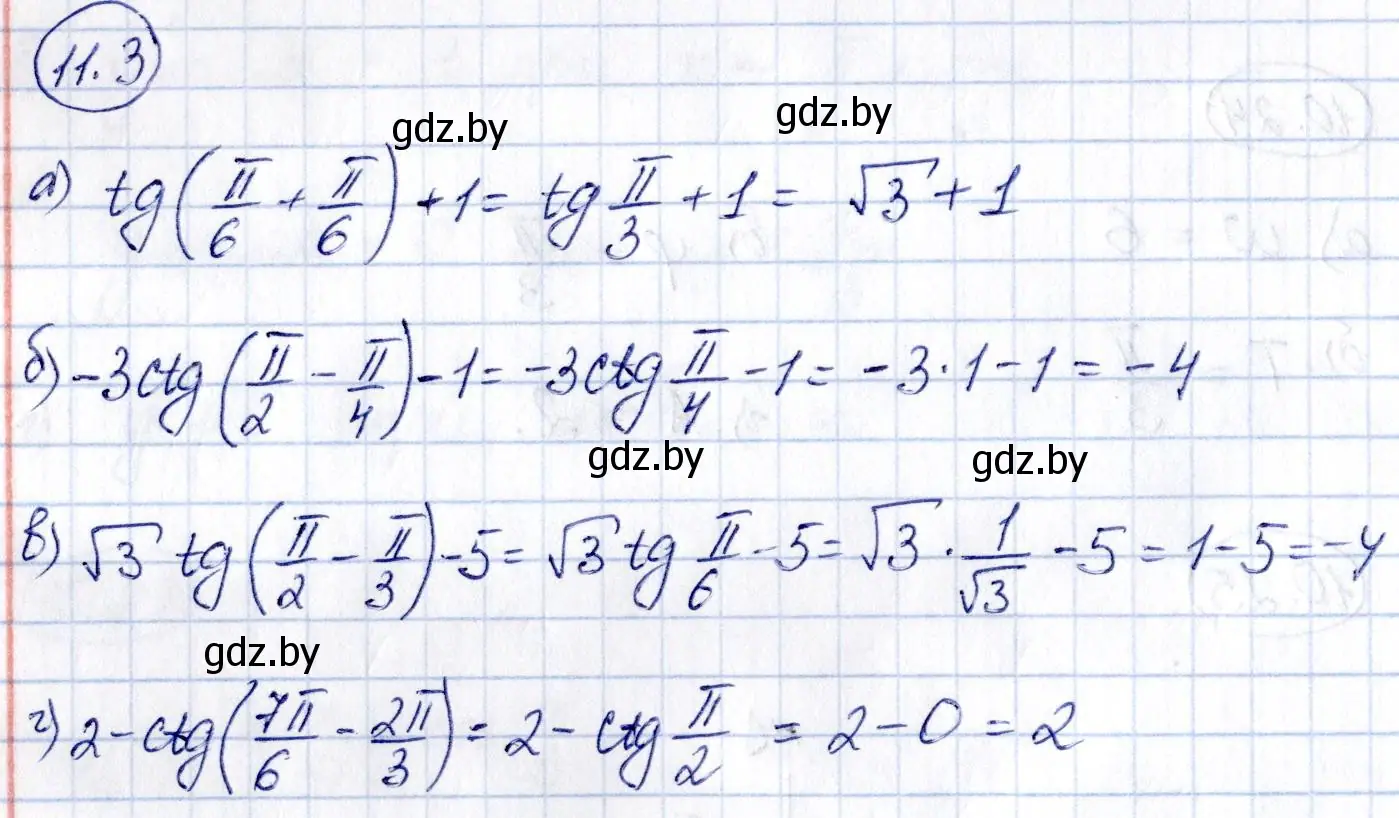 11.3
gdz.by gdz.by
а) tg(π/6 + π/6) + 1 = tg π/3 + 1 = √3 + 1
б) -3ctg(π/2 - π/4) - 1 = -3ctg π/4 - 1 = -3·1 - 1 = -4
gdz.by gdz.by
в) √3 tg(π/2 - π/3) - 5 = √3 tg π/6 - 5 = √3 · 1/√3 - 5 = 1 - 5 = -4
gdz.by
г) 2 - ctg(7π/6 - 2π/3) = 2 - ctg π/2 = 2 - 0 = 2